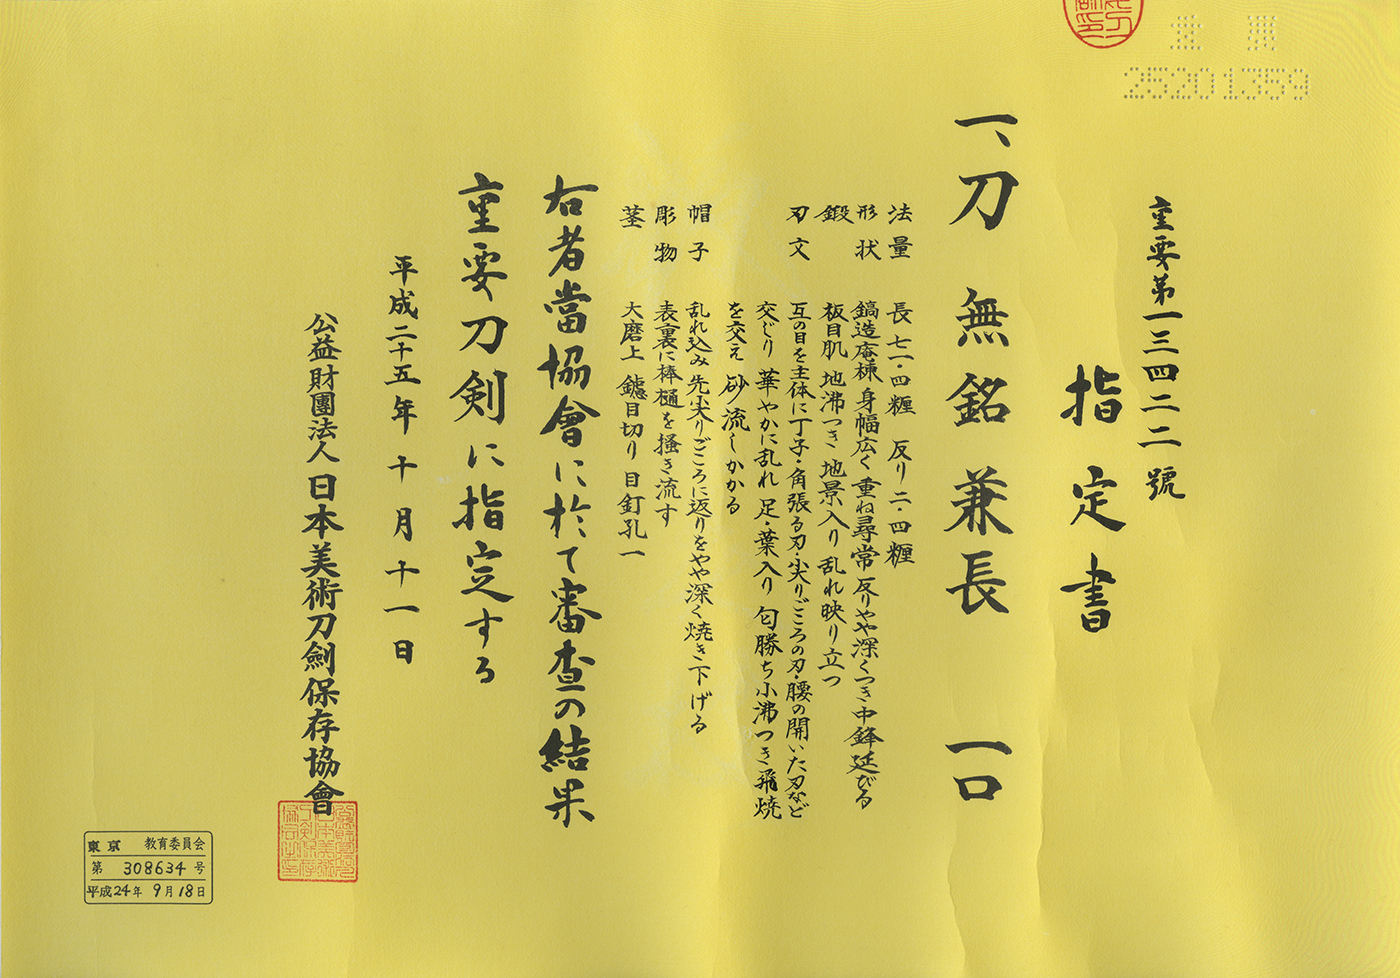 重要
25201359
重要第一三四二二號
指定書
一、刀 無銘 兼長 一口
法量 長 七一・四糎 反り 二・四糎
形状 鎬造 庵棟 身幅広く 重ね尋常 反りやや深くつき 中鋒延びる
鍛 板目肌 地沸つき 地景入り 乱れ映り立つ
刃文 互の目を主体に丁子・角張る刃・尖りごころの刃・腰の開いた刃など
交じり 華やかに乱れ 足・葉入り 匂勝ち小沸つき 飛焼
を交え 砂流しかかる
帽子 乱れ込み 先尖りごころに返りをやや深く焼き下げる
彫物 表裏に棒樋を掻き流す
茎 大磨上 鑢目切り 目釘孔一
右者當協會に於て審査の結果
重要刀剣に指定する
平成二十五年十月十一日
公益財團法人 日本美術刀劍保存協會
東京 教育委員会
第 308634 号
平成24年 9月18日